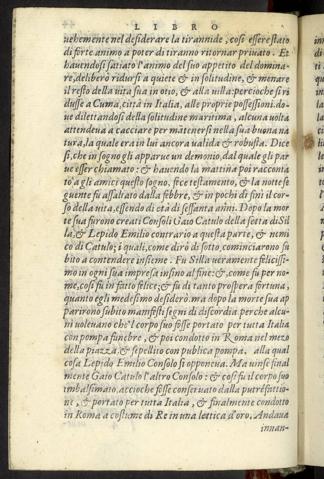 LIBRO
uehemente nel desiderare la tirannide, cosi essere stato
di forte animo a poter di tiranno ritornar priuato. Et
hauendosi satiato l'animo del suo appetito del domina-
re, deliberò ridursi a quiete & in solitudine, & menare
il resto della vita sua in otio, & alla uilla: percioche si ri
dusse a Cuma, città in Italia, alle proprie possessioni. do-
ue dilettandosi della solitudine maritima, alcuna uolta
attendeua a cacciare per mātenersi nella sua buona na
tura, la quale era in lui ancora ualida & robusta. Dice
si, che in sogno gli apparue un demonio, dal quale gli par
ue esser chiamato: & hauendo la mattina poi racconta
to a gli amici questo sogno, fece testamento, & la notte se
guente fu assaltato dalla febbre, & in pochi dì finì il cor-
so della vita, essendo di età di sessanta anni. Dopo la mor
te sua furono creati Consoli Gaio Catulo della setta di Sil
la, & Lepido Emilio contrario a questa parte, & nemi
co di Catulo; i quali, come dirò di sotto, cominciarono su
bito a contendere insieme. Fu Silla ueramente felicissi-
mo in ogni sua impresa insino al fine: &, come fu per no-
me, così fu in fatto felice; & fu di tanto prospera fortuna,
quanto egli medesimo desiderò. ma dopo la morte sua ap
parirono subito manifesti segni di discordia perche alcu-
ni uoleuano che'l corpo suo fosse portato per tutta Italia
con pompa funebre, & poi condotto in Roma nel mezo
della piazza & sepellito con publica pompa. alla qual
cosa Lepido Emilio Consolo si opponeua. Ma uinse final
mente Gaio Catulo l'altro Consolo: & così fu il corpo suo
imbalsimato, accioche fosse conseruato dalla putrefattio-
ne, & portato per tutta Italia, & finalmente condotto
in Roma a costume di Re in una lettica d'oro. Andaua
innan-